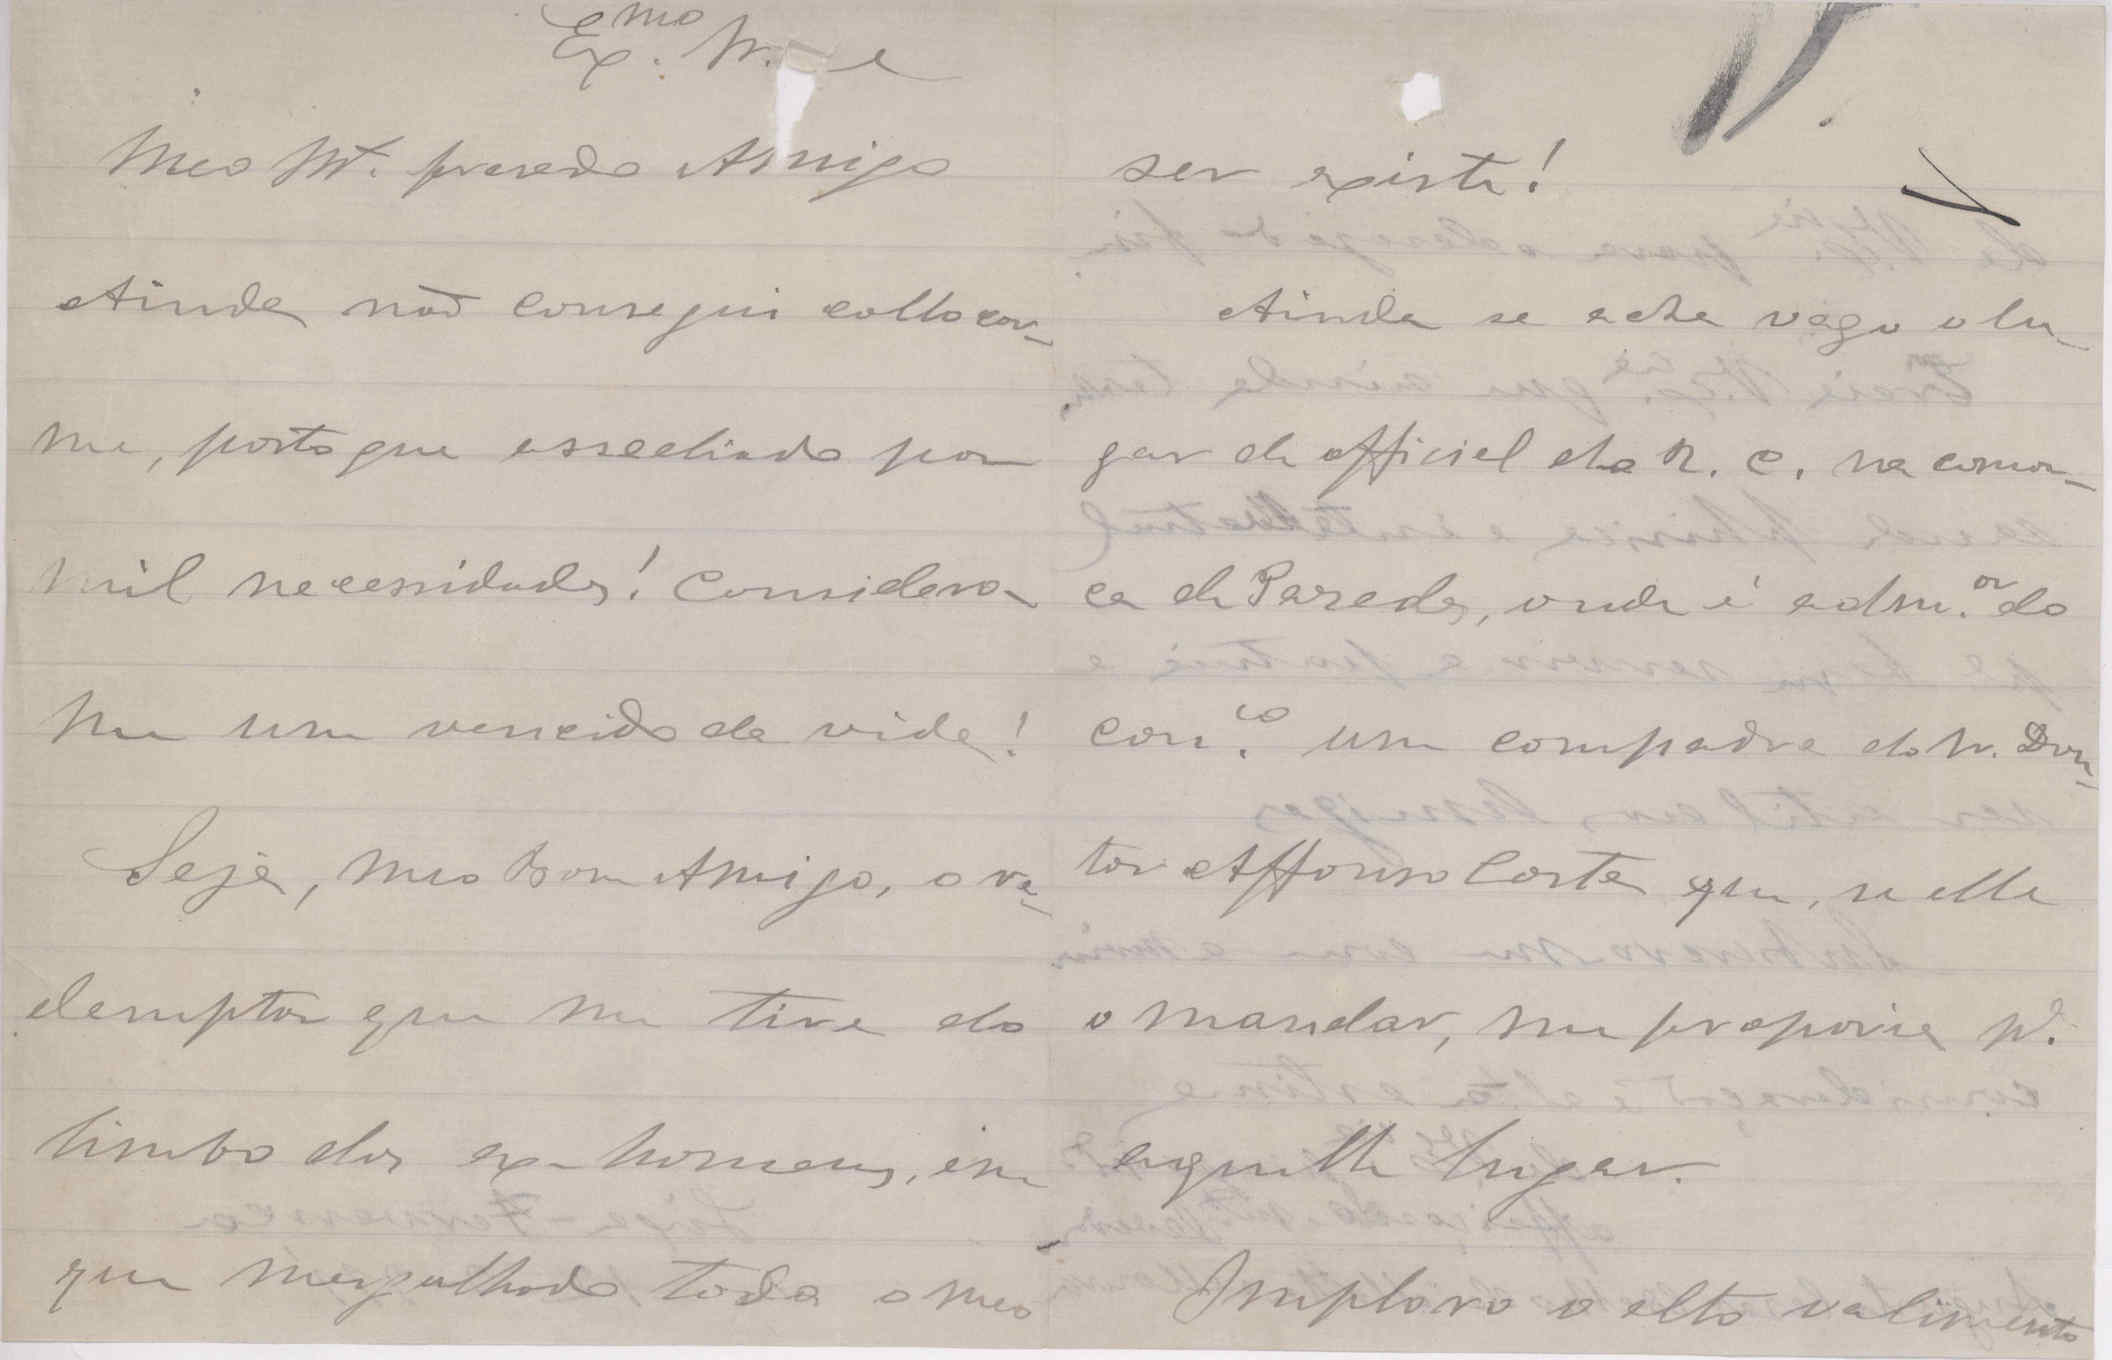 Exmo. Sr. e
Meo Mt. presado Amigo
Ainda não consegui collocar-
me, posto que assediado por
mil necessidades! Considero-
me um vencido da vida!
Seja, meo Bom Amigo, o re-
demptor que me tire do
limbo dos ex-homens, em
que mergulhado todo o meo
ser existe!
Ainda se acha vago o lu-
gar de official do R. C. na comar-
ca de Paredes, onde é adm.or do
con.co um compadre do Sr. Dou-
tor Affonso Costa que, se elle
o mandar, me proporia p.a
aquelle lugar.
Imploro o alto valimento